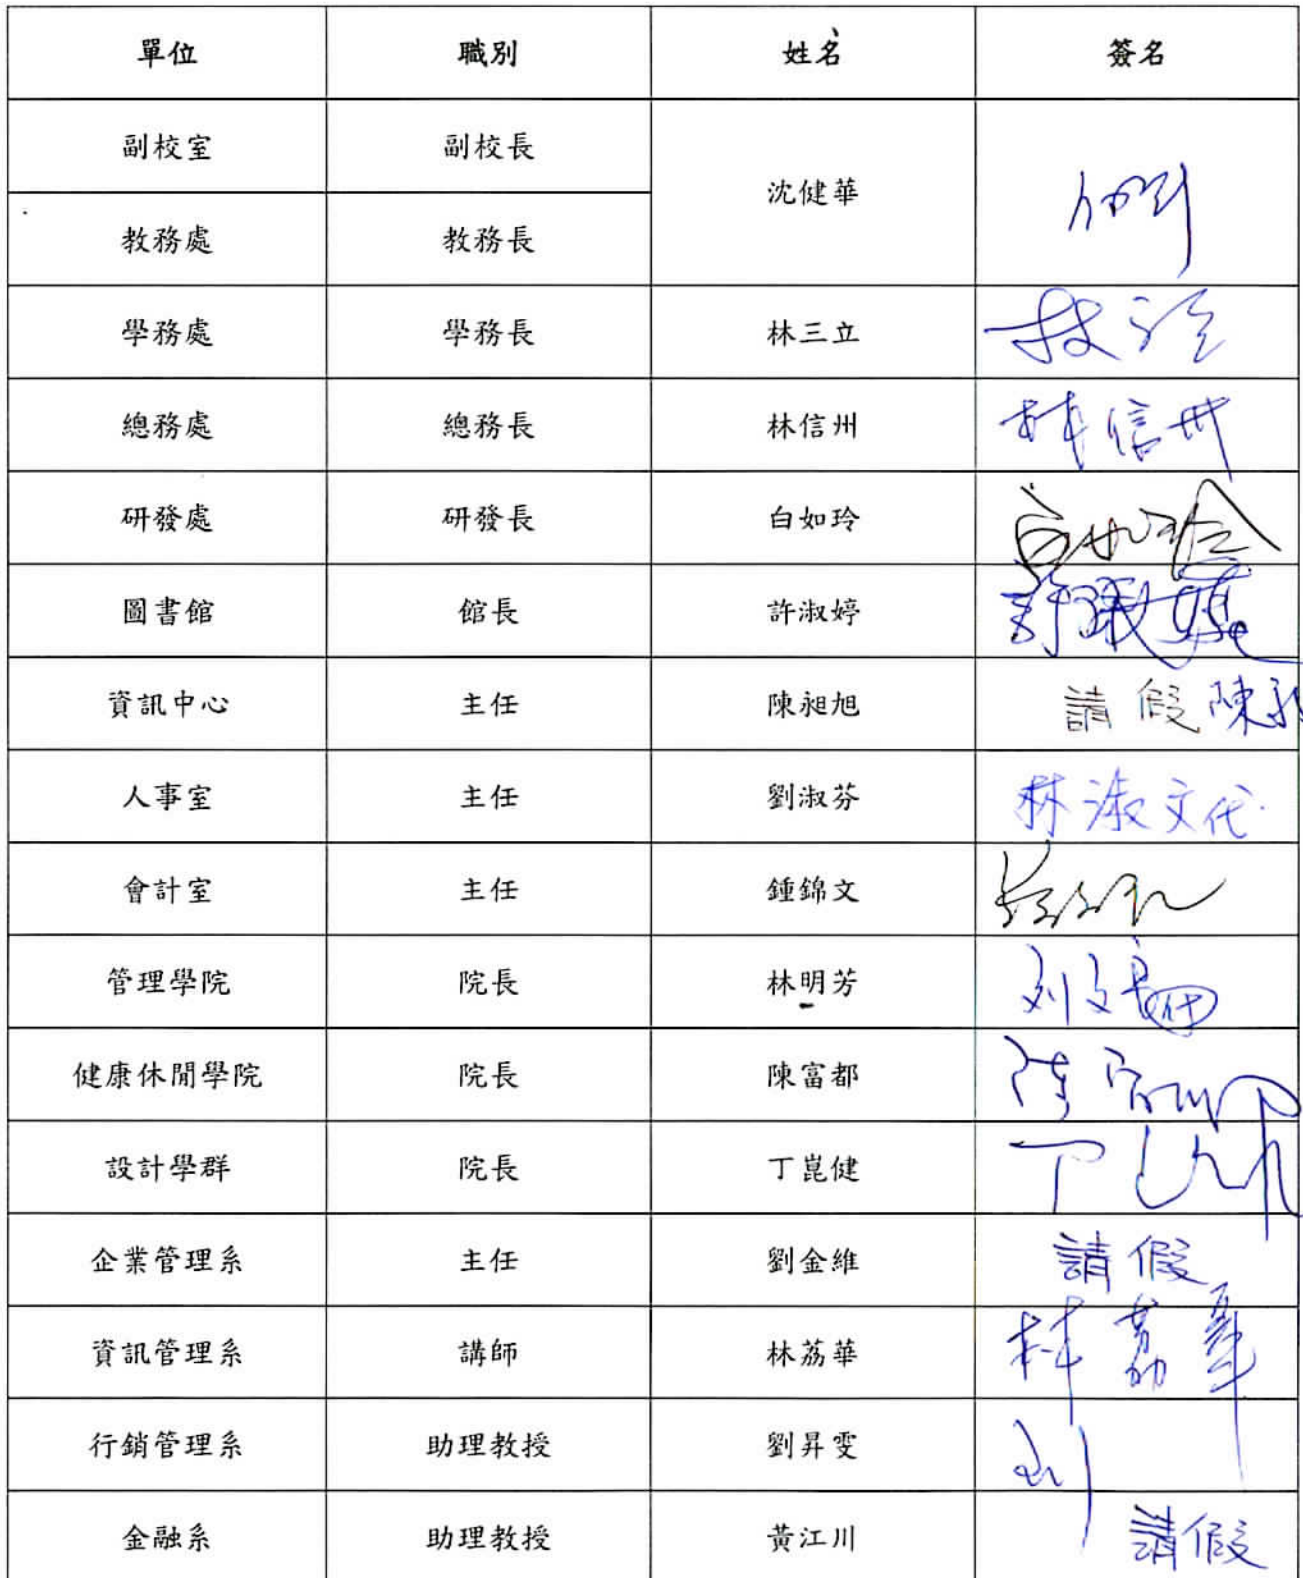 單位 職別 姓名 簽名
副校室 副校長 沈健華
教務處 教務長
學務處 學務長 林三立
總務處 總務長 林信州 林信州
研發處 研發長 白如玲 白如玲
圖書館 館長 許淑婷 許淑婷
資訊中心 主任 陳昶旭 請假 陳
人事室 主任 劉淑芬 林淑文代
會計室 主任 鍾錦文
管理學院 院長 林明芳 代
健康休閒學院 院長 陳富都
設計學群 院長 丁崑健 丁
企業管理系 主任 劉金維 請假
資訊管理系 講師 林荔華 林荔華
行銷管理系 助理教授 劉昇雯 刘
金融系 助理教授 黃江川 請假